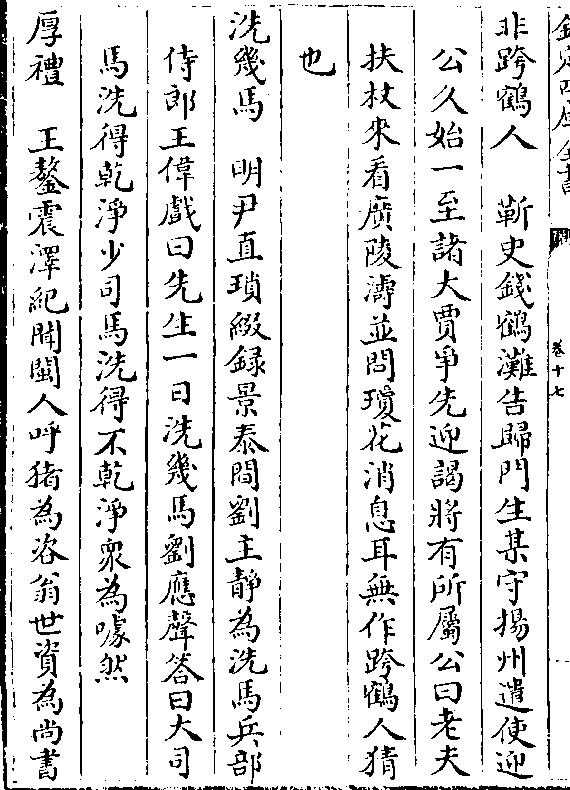 欽定四庫全書
卷十七
非跨鶴人　靳史錢鶴灘告歸門生某守揚州遣使迎
公久始一至諸大賈爭先迎謁將有所屬公曰老夫
扶杖來看廣陵濤並問瓊花消息耳無作跨鶴人猜
也
洗幾馬　明尹直瑣綴録景泰間劉主靜為洗馬兵部
侍郎王偉戲曰先生一日洗幾馬劉應聲答曰大司
馬洗得乾淨少司馬洗得不乾淨衆為噱然
厚禮　王鏊震澤紀聞閩人呼豬為㴰翁世資為尚書